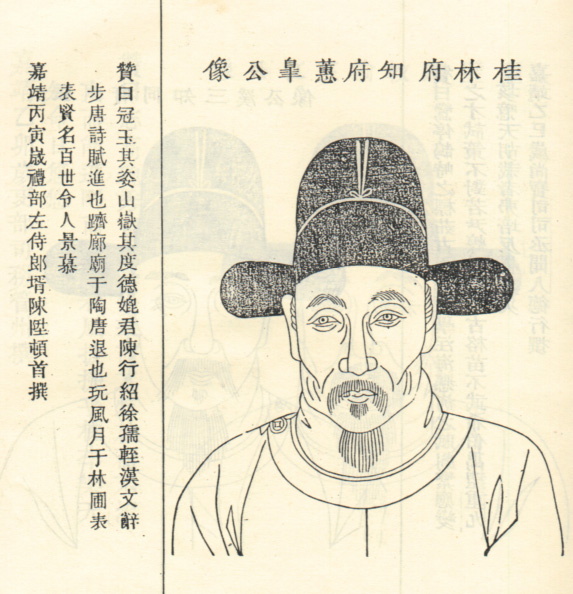 桂林府知府蕙皐公像
贊曰冠玉其姿山嶽其度德媲君陳行紹徐孺輊漢文辭
步唐詩賦進也躋廊廟于陶唐退也玩風月于林圃表
表賢名百世令人景慕
嘉靖丙寅歲禮部左侍郎壻陳陞頓首撰